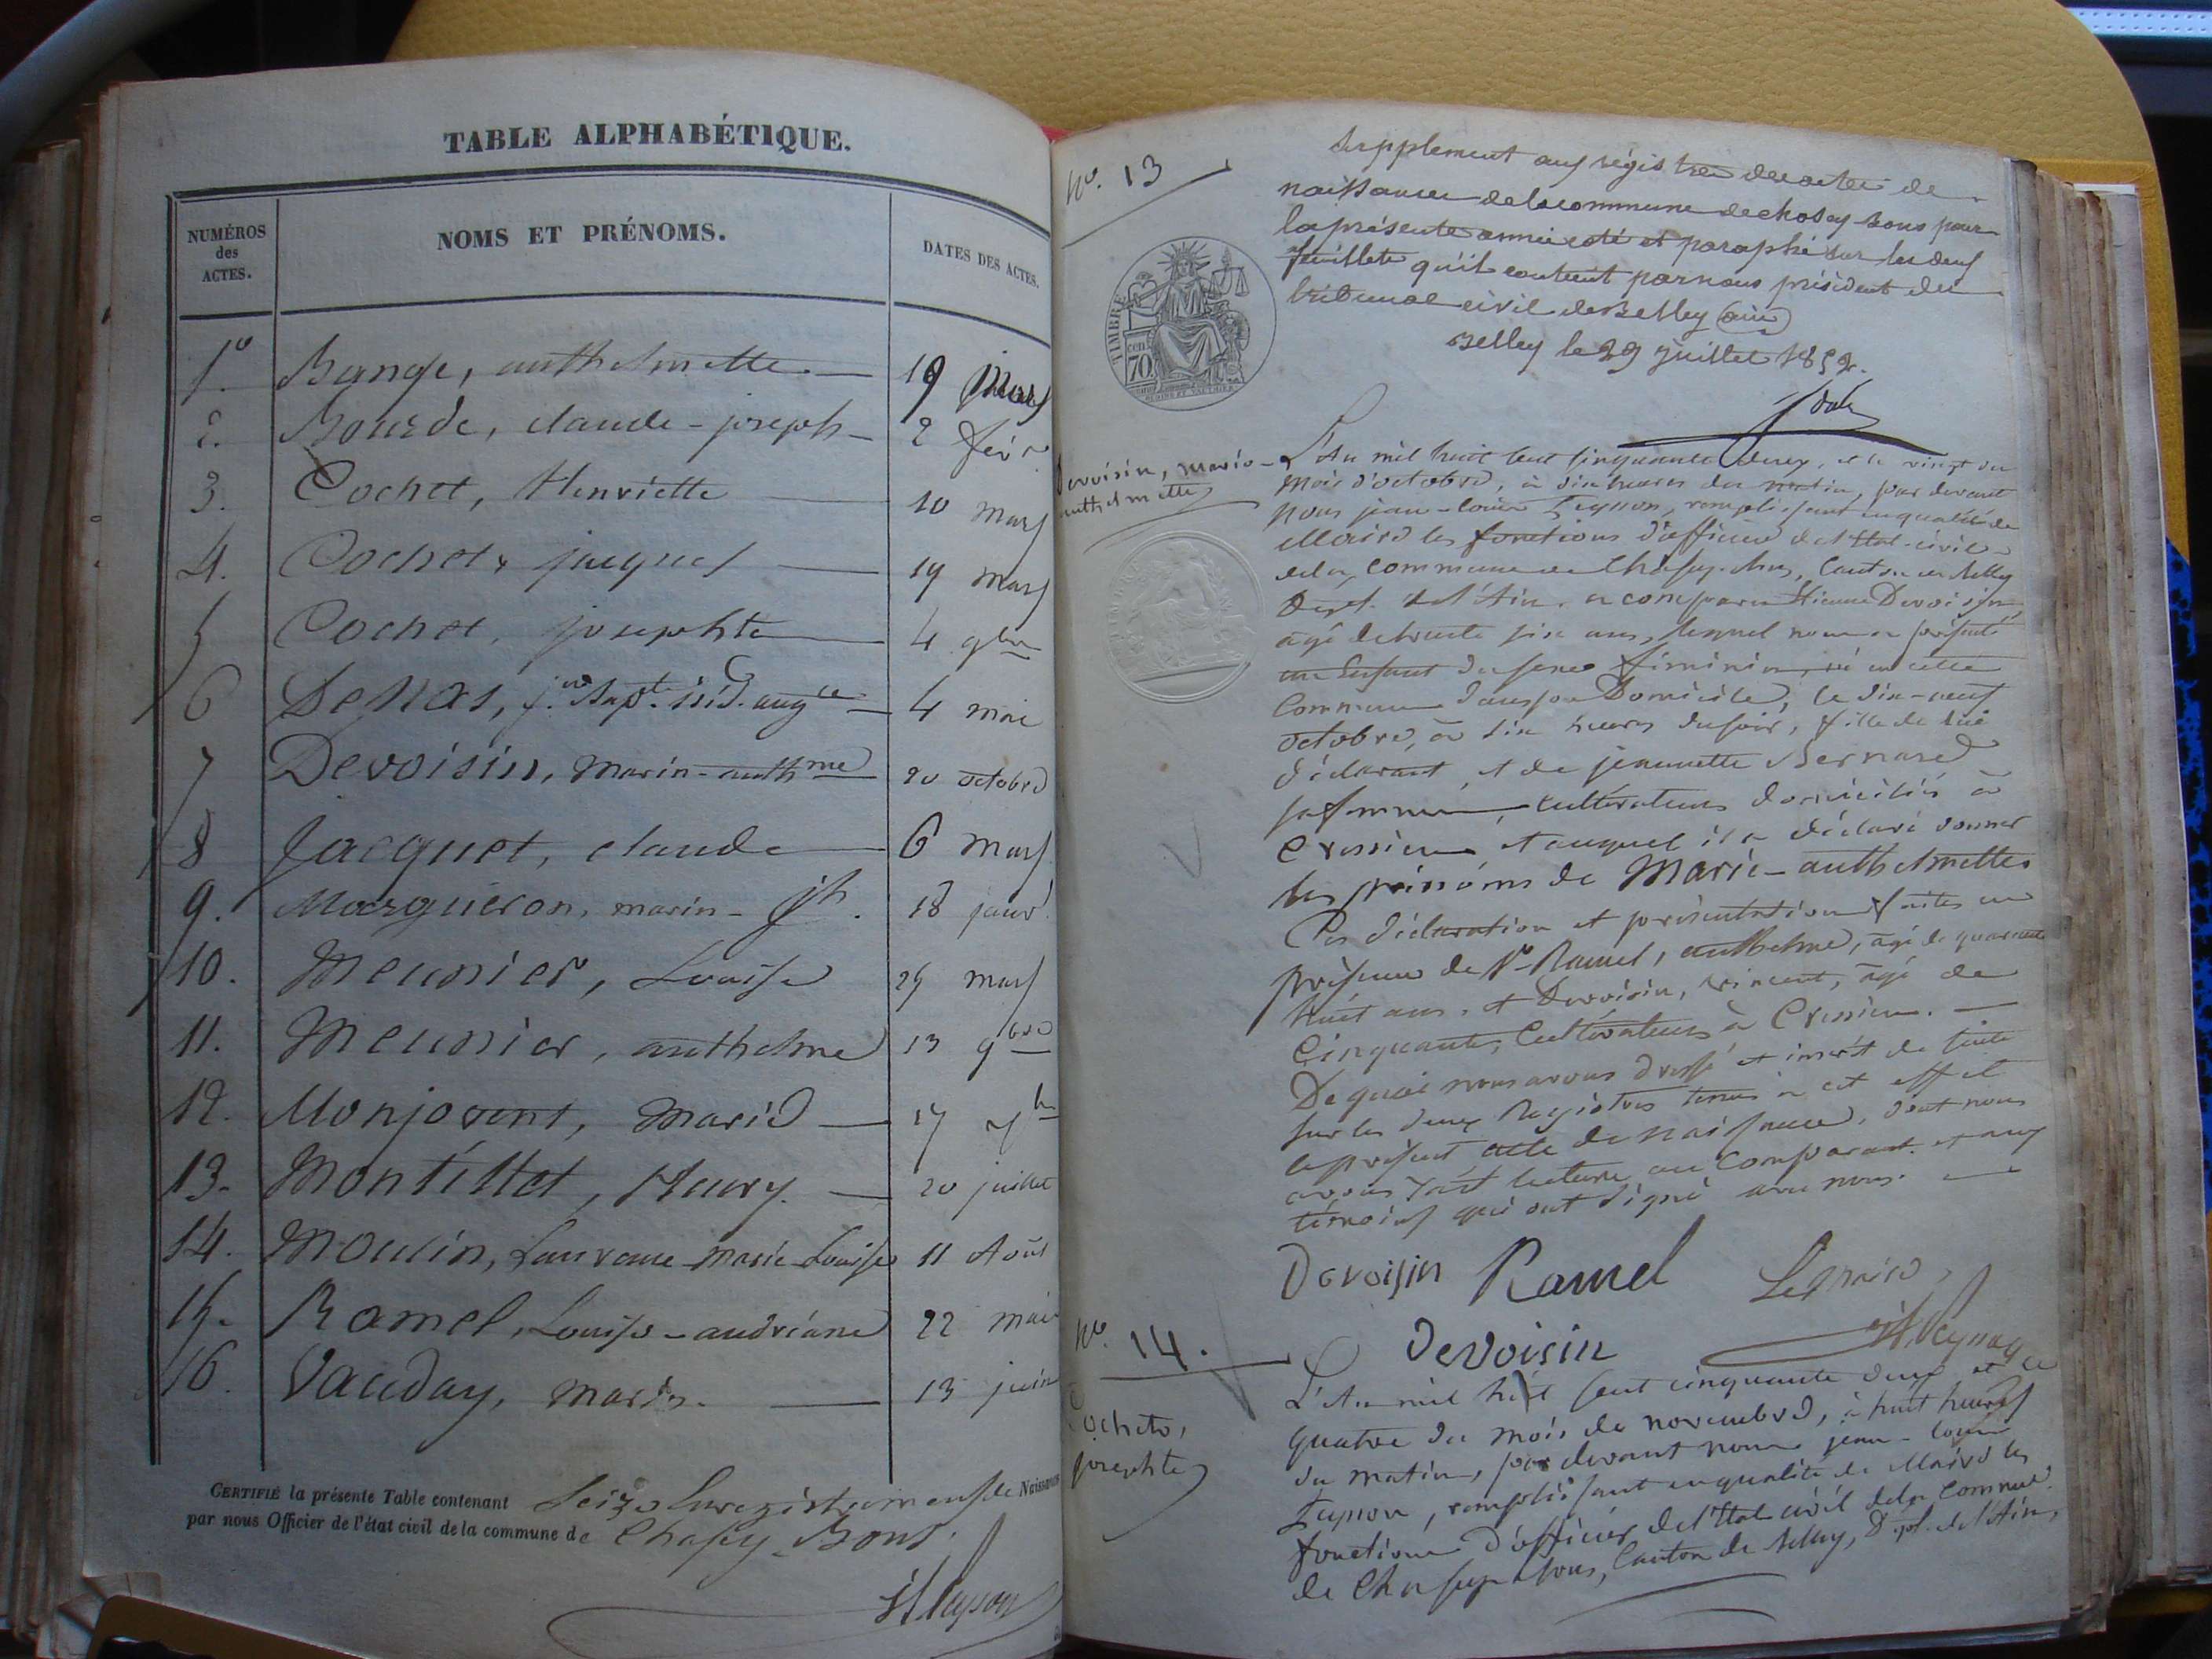 TABLE ALPHABÉTIQUE.
NUMÉROS des ACTES.
NOMS ET PRÉNOMS.
DATES DES ACTES.
1º. Bange, anthelmette 19 Mars
2. Bourde, claude-joseph 2 fév
3. Cochet, Henriette 10 mars
4. Cochet, jacques 19 mars
5 Cochet, josephte 4 9bre
6 DeNas, j. Bapt. 4 mai
7 Devoisin, Marie-anthme 20 octobre
8 Jacquet, claude 6 mars
9. Margueron, marin-jh. 18 janv.
10. Meunier, Louise 25 mars
11. Meunier, anthelme 13 9bre
12. Monjovent, Marie 17
13. Montillet, Maury. 20 juillet
14. Moulin, Laurence-marie-Louise 11 Août
15. Ramel, Louise-andréane 22 mai
16. Vauday, 13 juin
CERTIFIÉ la présente Table contenant Seize Enregistremens de Naissances
par nous Officier de l'état civil de la commune de Chasey-Bons.
Nº. 13
Supplement aux régistres des actes de
naissances de la commune de chosey bons pour
la présente année coté et paraphé sur les deux
feuillets qu'il contient par nous président du
tribunal civil de Belley (ain)
Belley le 29 juillet 1852.
TIMBRE
70
cen
Devoisin, marie-
anthelmette
L'An mil huit cent cinquante deux, et le vingt du
mois d'octobre, à dix heures du matin, par devant
nous jean-louis Peysson, remplissant en qualité de
Maire les fonctions d'officier de l'Etat-civil
de la commune de Chasey-bons, Canton de Belley
Dept. de l'Ain, a comparu Etienne Devoisin,
agé de trente six ans, lequel nous a présenté
un Enfant du sexe féminin, né en cette
commune dans son Domicile, le dix-neuf
octobre, à six heures du soir, fille de lui
déclarant, et de jeannette Bernard
sa femme, cultivateurs domiciliés à
Cressieu et auquel il a déclaré donner
les prénoms de Marie-anthelmette
Ces déclaration et présentation faites en
présence de Ramel, anthelme, agé de quarante
huit ans, et Devoisin, vincent, agé de
Cinquante, Cultivateurs à Cressieu.
De quoi nous avons dressé et inscrit de suite
sur les deux Registres tenus à cet effet
le présent acte de naissance, dont nous
avons fait lecture au Comparant et aux
témoins qui ont signé avec nous.
Devoisin Ramel Le Maire,
Devoisin
Nº. 14.
Cochet,
josephte
L'An mil huit cent cinquante deux et le
quatre du mois de novembre, à huit heures
du matin, par devant nous jean-louis
Peysson, remplissant en qualité de Maire les
fonctions d'officier de l'Etat civil de la commune
de Chasey-bons, Canton de Belley, Dept. de l'Ain,